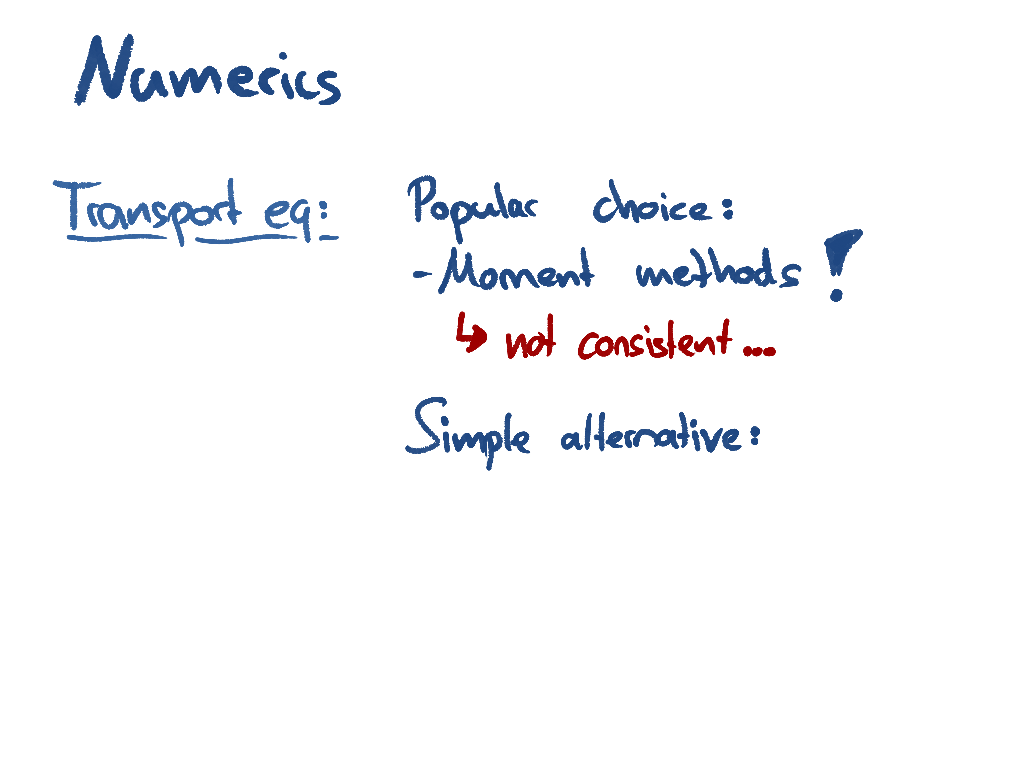 Numerics
Transport eq:
Popular choice:
- Moment methods !
↳ not consistent...
Simple alternative: